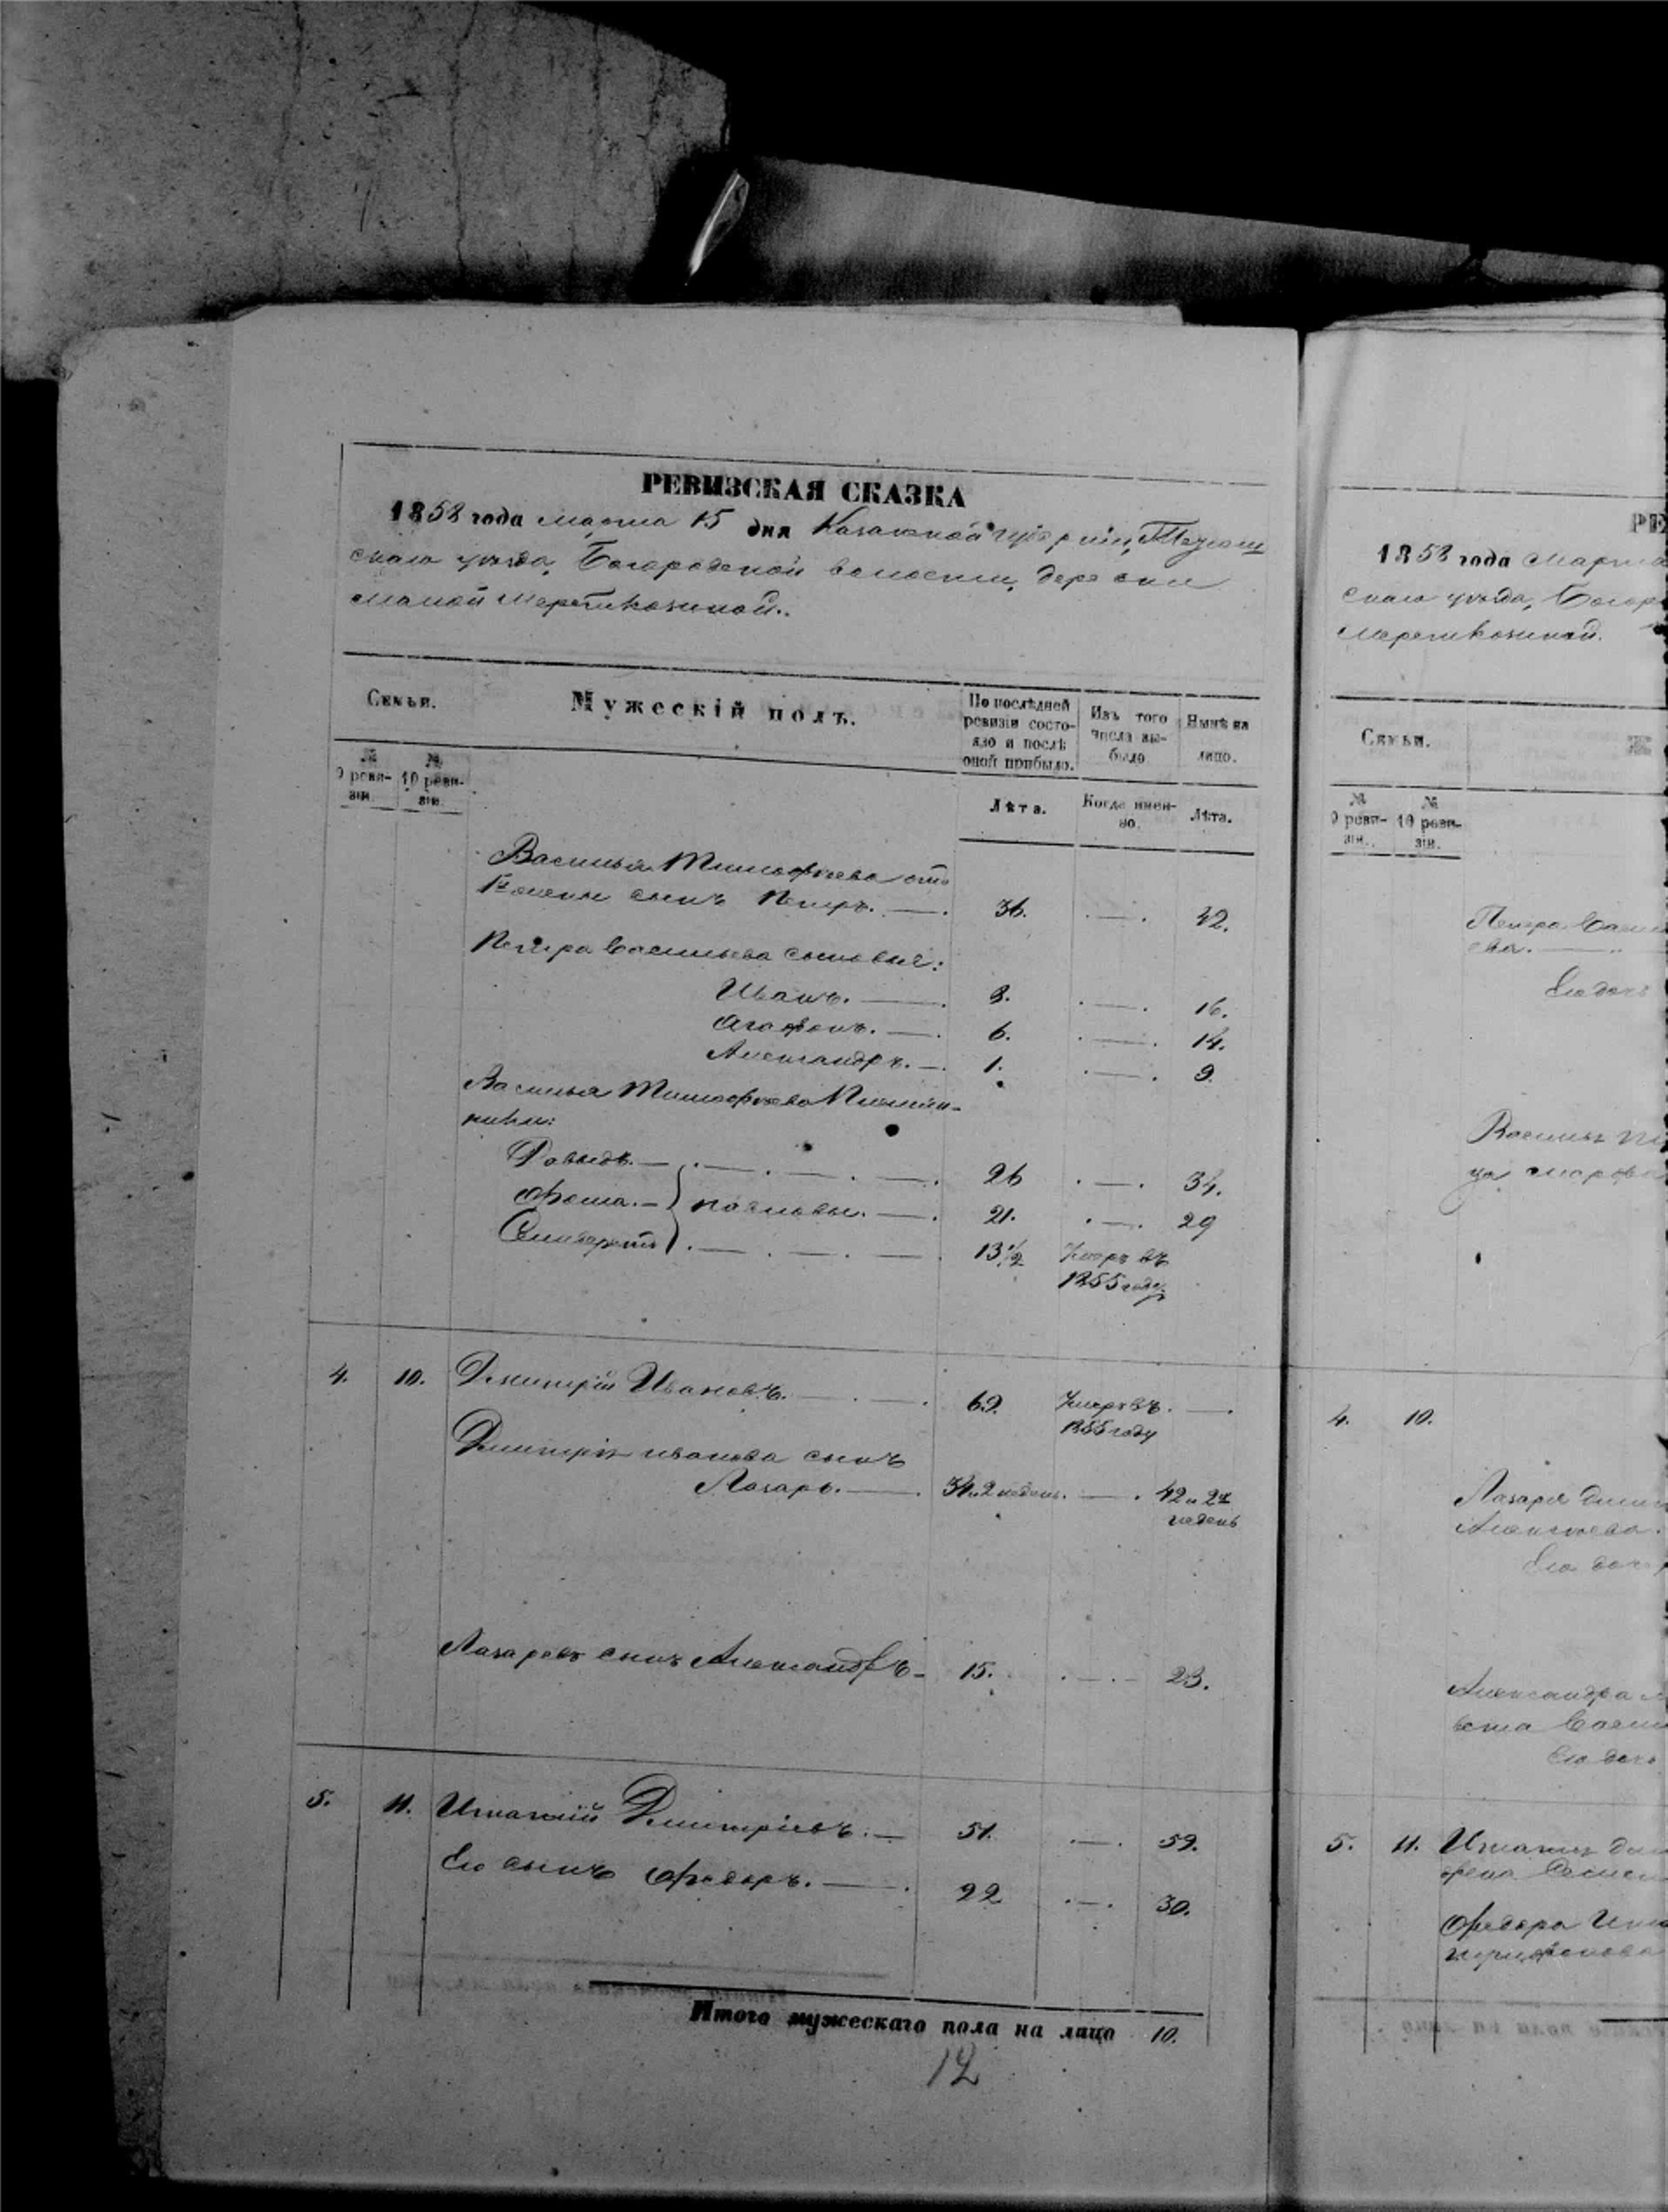 РЕВИЗСКАЯ СКАЗКА
1858 года марта 15 дня Казанской губернiи, Тетюш
скаго уѣзда, Богородской волости, деревни
малой Меретикозиной.
Семьи.
Мужескiй полъ.
По послѣдней ревизiи состо-яло и послѣ оной прибыло.
Изъ того числа вы-было
Нынѣ на лицо.
№ 9 реви-зiи.
№ 10 реви-зiи.
Лѣта.
Когда имен-но.
Лѣта.
Василья Тимофѣева отъ
1й жены сынъ Петръ. — 36. — 42.
Петра Васильева сыновья:
Иванъ. — 8. — 16.
Агафонъ. — 6. — 14.
Александръ. — 1. — 9.
Василья Тимофѣева Племян-
ники:
Давыдъ. — 26 — 34.
Фома. — Павловы. — 21. — 29
13 1/2 Умеръ въ
1855 году
4. 10. Дмитрiй Ивановъ. — 69. Умеръ въ —
1855 году
Дмитрiя иванова сынъ
Лазарь. — 34 и 2 недель. — 42 и 2х
недель
Лазаревъ сынъ Александръ — 15. — 23.
5. 11. Игнатiй Дмитрiевъ. — 51. — 59.
Его сынъ Федоръ. — 22 — 30.
Итого мужескаго пола на лицо 10.
12
РЕ
1858 года Марта
скаго уѣзда, Богор
Меретикозиной.
Семьи.
Ж
№ 9 реви-зiи.
№ 10 реви-зiи.
Петра Васил
ева. —
Его дочь
Василья
4. 10.
Лазаря дмит
Алексѣева.
Его дочь
Александра
Васил
Его дочь
5. 11. Игнатья дм
Федора Игна